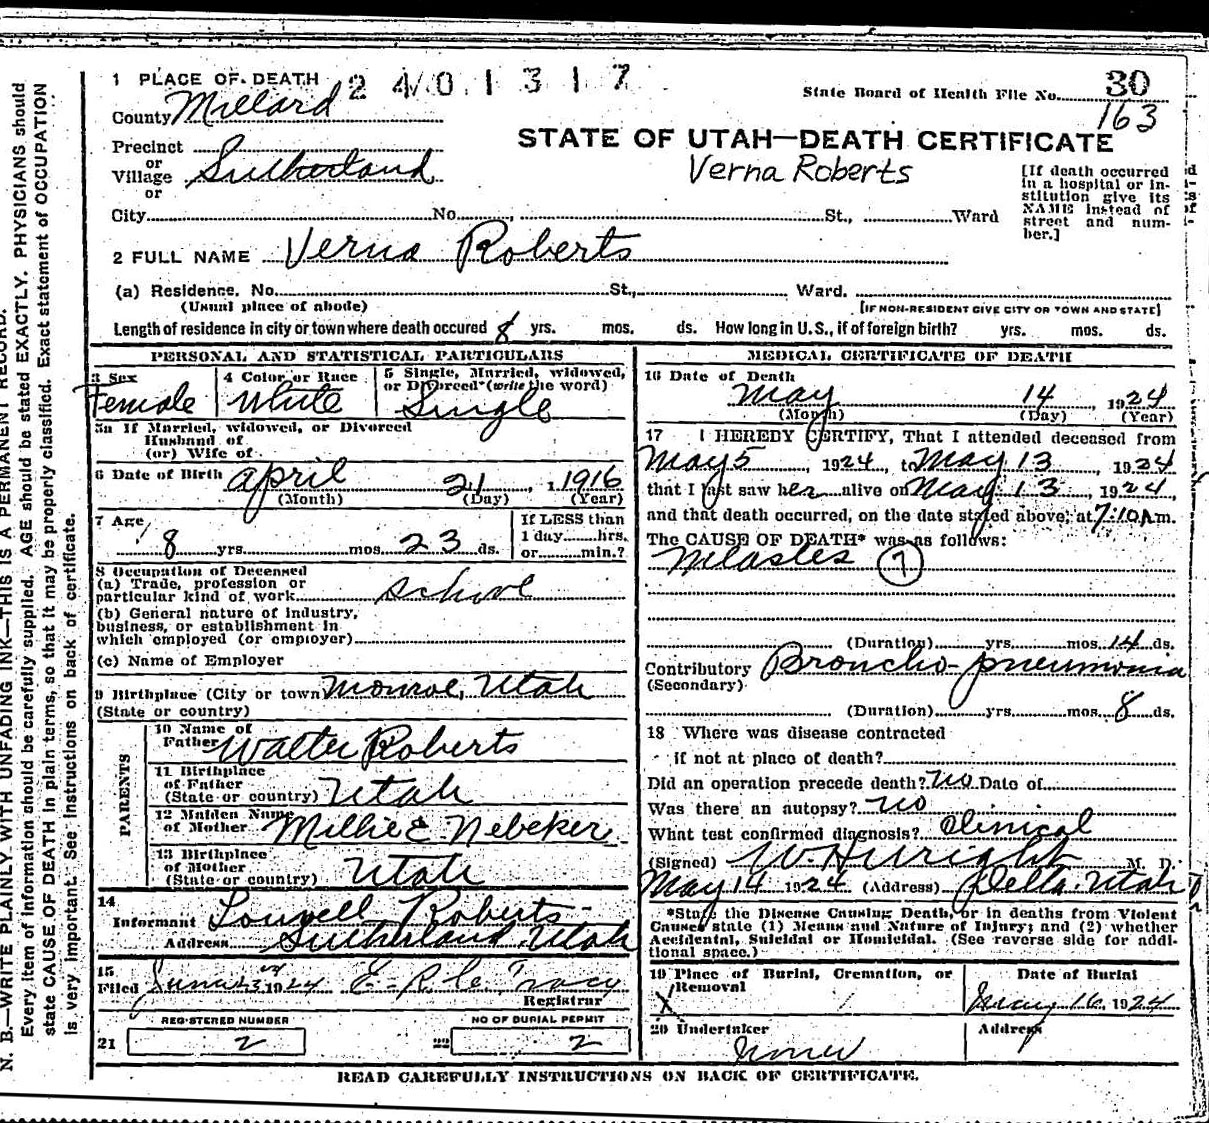 1 PLACE OF DEATH 2 4 0 1 3 1 7
State Board of Health File No. 30
163
County Millard
STATE OF UTAH—DEATH CERTIFICATE
Verna Roberts
Precinct
or
Village Sutherland
or
[If death occurred
in a hospital or in-
stitution give its
NAME instead of
street and num-
ber.]
City No. St., Ward
2 FULL NAME Verna Roberts
(a) Residence. No. St., Ward.
(Usual place of abode) [IF NON-RESIDENT GIVE CITY OR TOWN AND STATE]
Length of residence in city or town where death occured 8 yrs. mos. ds. How long in U.S., if of foreign birth? yrs. mos. ds.
PERSONAL AND STATISTICAL PARTICULARS
3 Sex
Female
4 Color or Race
White
5 Single, Married, widowed,
or Divorced (write the word)
Single
5a If Married, widowed, or Divorced
Husband of
(or) Wife of
6 Date of Birth April 21, 1916
(Month) (Day) (Year)
7 Age
8 yrs. mos. 23 ds.
If LESS than
1 day hrs.
or min.?
8 Occupation of Deceased
(a) Trade, profession or
particular kind of work school
(b) General nature of industry,
business, or establishment in
which employed (or employer)
(c) Name of Employer
9 Birthplace (City or town) Monroe, Utah
(State or country)
PARENTS
10 Name of
Father Walter Roberts
11 Birthplace
of Father
(State or country) Utah
12 Maiden Name
of Mother Millie E Nebeker
13 Birthplace
of Mother
(State or country) Utah
14
Informant Lowell Roberts
Address Sutherland, Utah
15
Filed 1924
Registrar
REGISTERED NUMBER
21 2
NO OF BURIAL PERMIT
22 2
MEDICAL CERTIFICATE OF DEATH
16 Date of Death
May 14 1924
(Month) (Day) (Year)
17 I HEREBY CERTIFY, That I attended deceased from
May 5, 1924, to May 13, 1924
that I last saw her alive on May 13, 1924,
and that death occurred, on the date stated above, at 7:10 A m.
The CAUSE OF DEATH* was as follows:
Measles 7
(Duration) yrs. mos. 14 ds.
Contributory Broncho-pneumonia
(Secondary)
(Duration) yrs. mos. 8 ds.
18 Where was disease contracted
if not at place of death?
Did an operation precede death? no Date of
Was there an autopsy? no
What test confirmed diagnosis? Clinical
(Signed) W H Wright M. D.
May 14 1924 (Address) Delta Utah
*State the Disease Causing Death, or in deaths from Violent
Causes state (1) Means and Nature of Injury; and (2) whether
Accidental, Suicidal or Homicidal. (See reverse side for addi-
tional space.)
19 Place of Burial, Cremation, or
Removal
Date of Burial
May 16 1924
20 Undertaker
None
Address
READ CAREFULLY INSTRUCTIONS ON BACK OF CERTIFICATE.
N. B.—WRITE PLAINLY WITH UNFADING INK—THIS IS A PERMANENT RECORD.
Every item of information should be carefully supplied. AGE should be stated EXACTLY. PHYSICIANS should
state CAUSE OF DEATH in plain terms, so that it may be properly classified. Exact statement of OCCUPATION
is very important. See instructions on back of certificate.